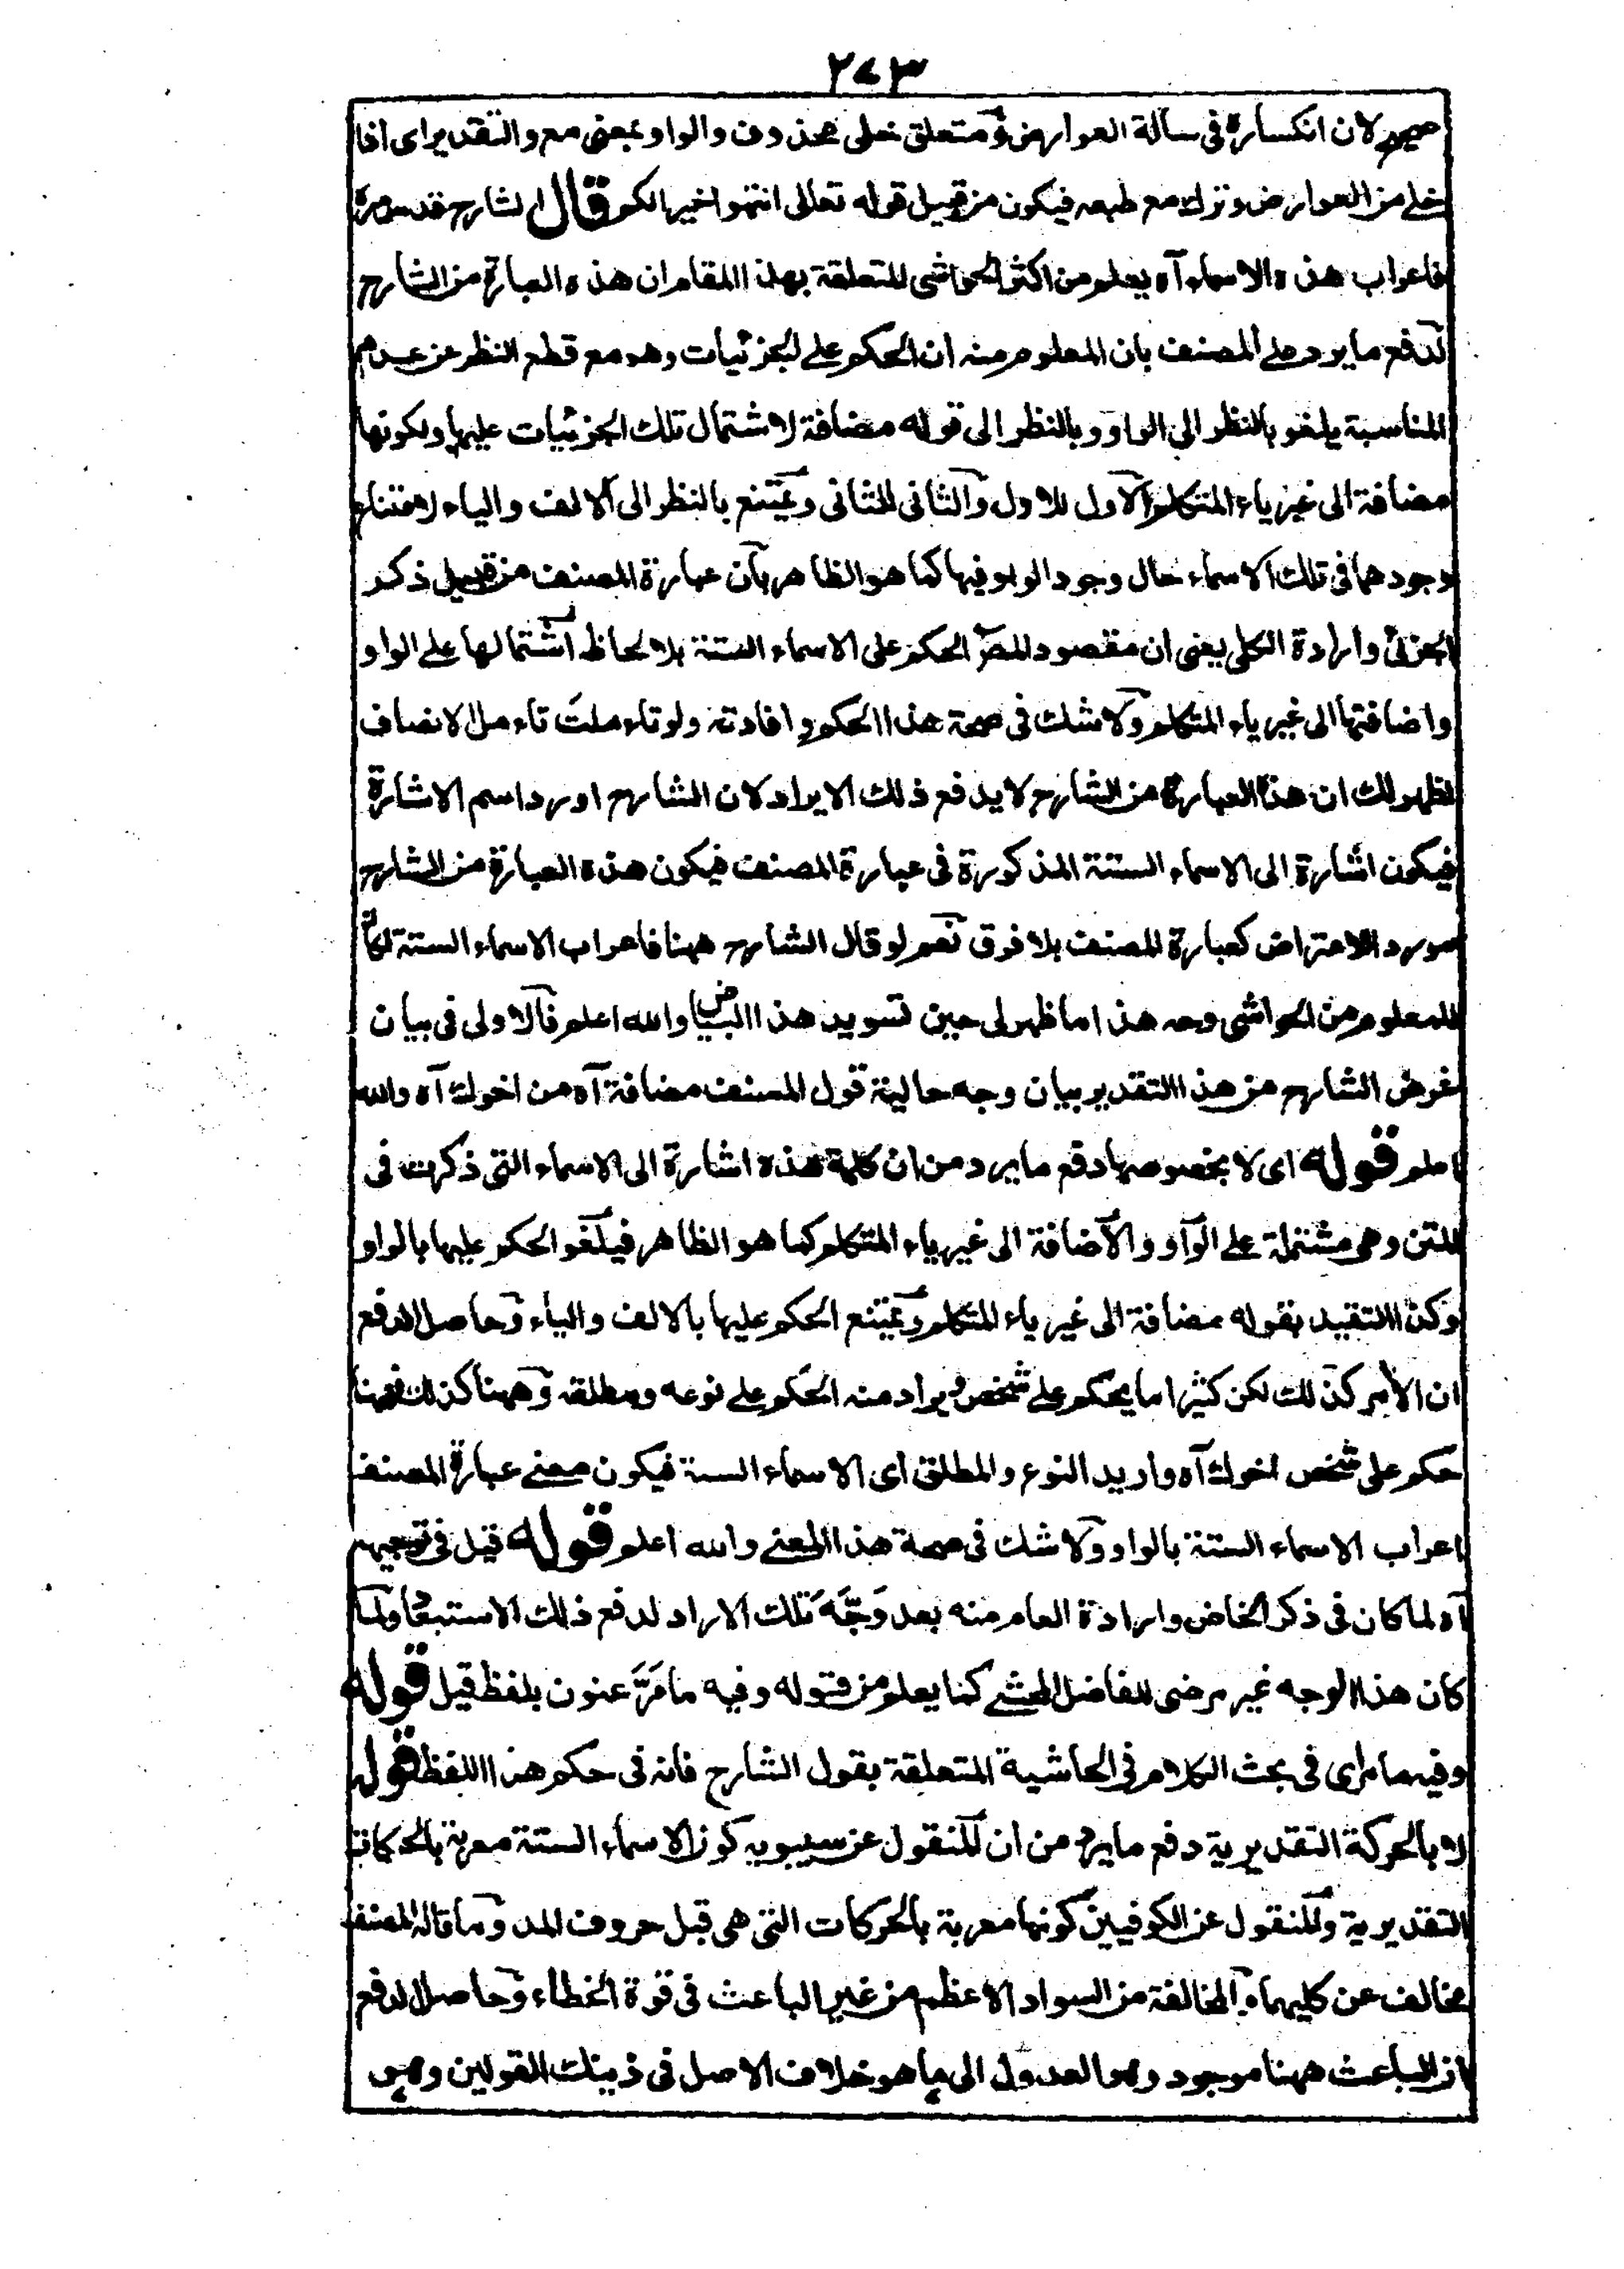 ٢٧٣
صحيح لان انكساره فى سالة العوارض و متعلق خلى محذوف والواو بمعنى مع والتقدير اى اذا
خلى من العوارض ونزل مع طبعه فيكون من قبيل قوله تعالى انتهوا خيرا لكم قال الشارح قدس سره
فاعراب هذه الاسماء آه يعلم من اكثر الحواشى المتعلقة بهذا المقام ان هذه العبارة من الشارح
لدفع ما يرد على المصنف بان المعلوم منه ان الحكم على الجزئيات وهو مع قطع النظر عن عدم
المناسبة يلغو بالنظر الى الواو وبالنظر الى قوله مضافة لاشتمال تلك الجزئيات عليها ولكونها
مضافة الى غير ياء المتكلم الاول للاول والثانى للثانى ويمتنع بالنظر الى الالف والياء لامتناع
وجودهما فى تلك الاسماء حال وجود الواو فيها كما هو الظاهر بان عبارة المصنف من قبيل ذكر
الجزئى وارادة الكلى يعنى ان مقصود المصر الحكم على الاسماء الستة بلا لحاظ اشتمالها على الواو
واضافتها الى غير ياء المتكلم ولا شك فى صحة هذا الحكم وافادته ولو تاءملت تاءمل الانصاف
لظهر لك ان هذه العبارة من الشارح لا يدفع ذلك الايراد لان الشارح اورد اسم الاشارة
فيكون اشارة الى الاسماء الستة المذكورة فى عبارة المصنف فيكون هذه العبارة من الشارح
مورد الاعتراض كعبارة المصنف بلا فرق نعم لو قال الشارح ههنا فاعراب الاسماء الستة لكان
للمعلوم من الحواشى وجه هذا ما ظهر لى حين تسويد هذا البياض والله اعلم فالاولى فى بيان
غرض الشارح من هذا التقدير بيان وجه حالية قول المصنف مضافة آه من اخوك آه والله
اعلم قوله اى لا بخصوصها دفع ما يرد من ان كلمة هذه اشارة الى الاسماء التى ذكرت فى
المتن وهى مشتملة على الواو والاضافة الى غير ياء المتكلم كما هو الظاهر فيلغو الحكم عليها بالواو
وكذا التقييد بقوله مضافة الى غير ياء المتكلم ويمتنع الحكم عليها بالالف والياء وحاصل الدفع
ان الأمر كذلك لكن كثيرا ما يحكم على شخص ويراد منه الحكم على نوعه ومطلقه وههنا كذلك فههنا
حكم على شخص اخوك آه واريد النوع والمطلق اى الاسماء الستة فيكون معنى عبارة المصنف
اعراب الاسماء الستة بالواو ولا شك فى صحة هذا المعنى والله اعلم قوله قيل فى توجيهه
آه لما كان فى ذكر الخاص وارادة العام منه بعد وَجَّهَ تلك الاراد لدفع ذلك الاستبعاد ولما
كان هذا الوجه غير مرضى للفاضل المحشى كما يعلم من قوله وفيه ما مَرَّ عنون بلفظ قيل قوله
وفيه ما مر اى فى بحث الكلام فى الحاشية المتعلقة بقول الشارح فانه فى حكم هذا اللفظ قوله
لا بالحركة التقديرية دفع ما يرد من ان المنقول عن سيبويه كون الاسماء الستة معربة بالحركات
التقديرية والمنقول عن الكوفيين كونها معربة بالحركات التى هى قبل حروف المد وما قاله المصنف
مخالف عن كليهما والمخالفة من السواد الاعظم من غير الباعث فى قوة الخطاء وحاصل الدفع
ان الباعث ههنا موجود وهو العدول الى ما هو خلاف الاصل فى ذينك القولين وهى